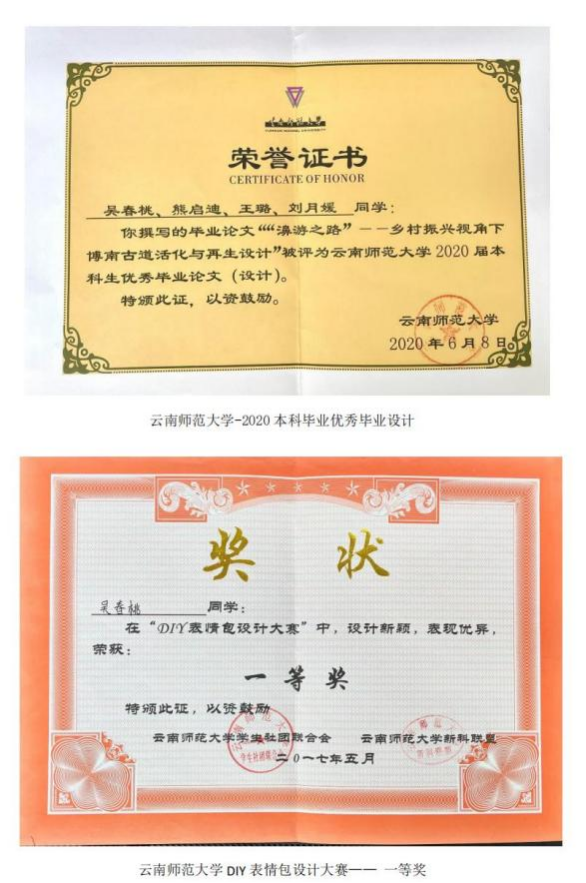 云南师范大学
YUNNAN NORMAL UNIVERSITY
荣誉证书
CERTIFICATE OF HONOR
吴春桃、熊启迪、王璐、刘月媛 同学：
你撰写的毕业论文““濞游之路”－－乡村振兴视角下
博南古道活化与再生设计”被评为云南师范大学 2020 届本
科生优秀毕业论文（设计）。
特颁此证，以资鼓励。
云南师范大学
2020 年 6 月 8 日
云南师范大学-2020 本科毕业优秀毕业设计
奖 状
吴春桃 同学：
在“DIY表情包设计大赛”中，设计新颖，表现优异，
荣获：
一等奖
特颁此证，以资鼓励
云南师范大学学生社团联合会 云南师范大学新科联盟
二0一七年五月
云南师范大学 DIY 表情包设计大赛—— 一等奖